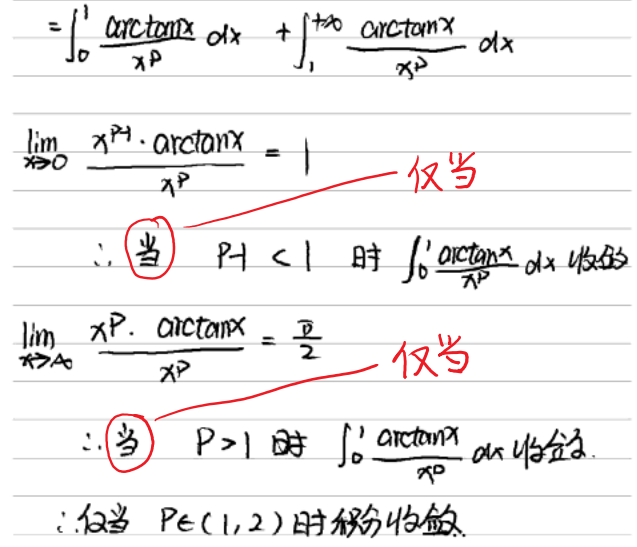 = ∫₀¹ arctanx / x^p dx + ∫₁^{+∞} arctanx / x^p dx
lim_{x→0} x^{p-1} · arctanx / x^p = 1
仅当
∴ 当 P-1 < 1 时 ∫₀¹ arctanx / x^p dx 收敛
lim_{x→+∞} x^p · arctanx / x^p = π/2
仅当
∴ 当 P>1 时 ∫₀¹ arctanx / x^p dx 收敛.
∴ 仅当 P∈(1,2) 时积分收敛.